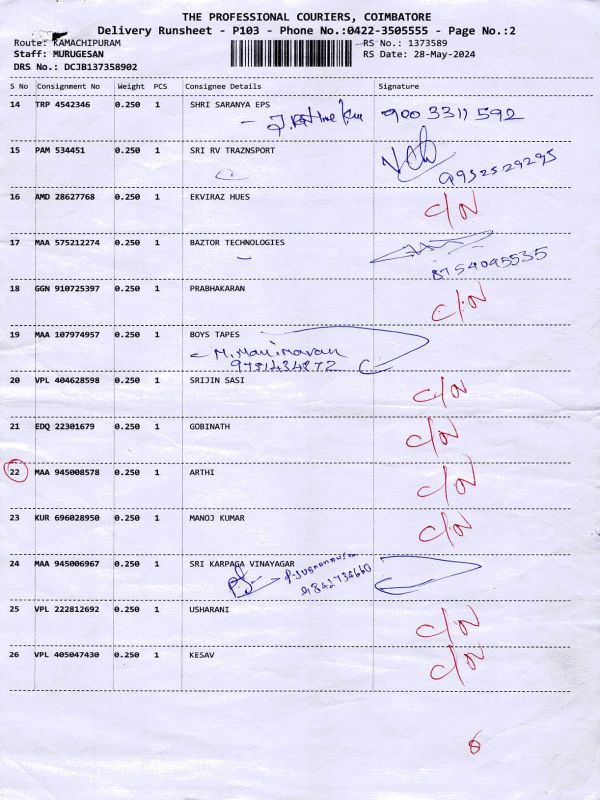 THE PROFESSIONAL COURIERS, COIMBATORE
Delivery Runsheet - P103 - Phone No.:0422-3505555 - Page No.:2
Route: KAMACHIPURAM
RS No.: 1373589
Staff: MURUGESAN
RS Date: 28-May-2024
DRS No.: DCJB137358902
S No Consignment No Weight PCS Consignee Details Signature
14 TRP 4542346 0.250 1 SHRI SARANYA EPS
900 3311 592
15 PAM 534451 0.250 1 SRI RV TRAZNSPORT
9952529295
16 AMD 28627768 0.250 1 EKVIRAZ HUES C/N
17 MAA 575212274 0.250 1 BAZTOR TECHNOLOGIES
8754045535
18 GGN 910725397 0.250 1 PRABHAKARAN C/N
19 MAA 107974957 0.250 1 BOYS TAPES
M. Manimaran
9791434872
20 VPL 404628598 0.250 1 SRIJIN SASI C/N
21 EDQ 22301679 0.250 1 GOBINATH C/N
22 MAA 945008578 0.250 1 ARTHI C/N
23 KUR 696028950 0.250 1 MANOJ KUMAR C/N
24 MAA 945006967 0.250 1 SRI KARPAGA VINAYAGAR
9842734660
25 VPL 222812692 0.250 1 USHARANI C/N
26 VPL 405047430 0.250 1 KESAV C/N
8